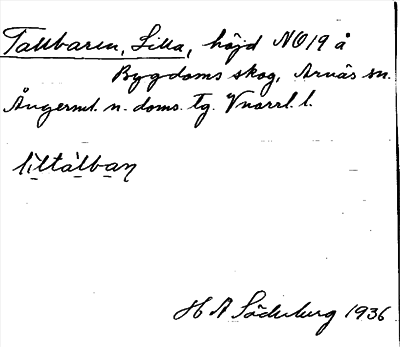 Tallbaren, Lilla, höjd NO19 å
Bygdoms skog, Arnäs sn.
Ångerml. n. doms. tg. Vnorrl. l.
lìltàlban
H A Söderberg 1936